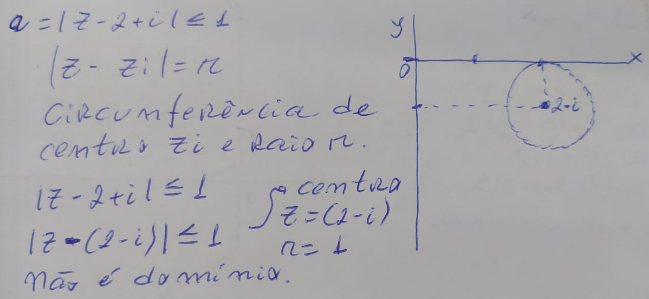 a = |z - 2 + i| ≤ 1
|z - zi| = r
Circunferência de
centro zi e raio r.
|z - 2 + i| ≤ 1
|z - (2 - i)| ≤ 1
centro
z = (2 - i)
r = 1
Não é domínio.
y
0
x
2-i